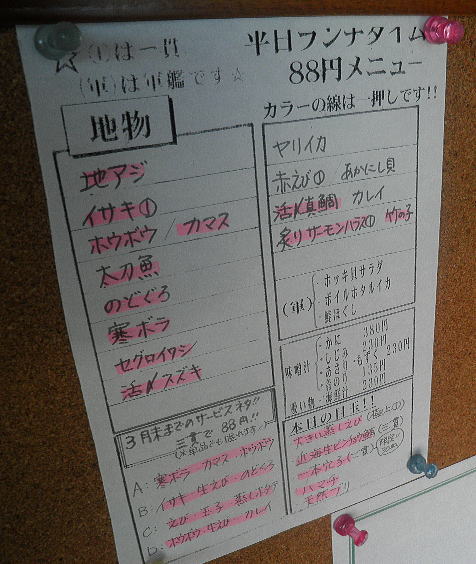 ☆(1)は一貫
(軍)は軍艦です☆
平日ランチタイム
88円メニュー
カラーの線は一押しです!!
地物
地アジ
イサキ①
ホウボウ／カマス
太刀魚
のどぐろ
寒ボラ
セグロイワシ
活〆スズキ
ヤリイカ
赤えび① あかにし貝
活〆真鯛 カレイ
炙りサーモンハラス① 竹の子
(軍)
・ホッキ貝サラダ
・ボイルホタルイカ
・鮭ほぐし
味噌汁
・かに 380円
・しじみ 230円
・あさり・もずく 230円
・青のり 135円
230円
3月末までのサービスネタ!!
三貫で88円!!
A: 寒ボラ カマス ホウボウ
B: イサキ 生えび のどぐろ
C: えび 玉子 蒸しホタテ
D: ホウボウ 生えび カレイ
本日の目玉!!
大きい蒸しえび
近海生ビン(三貫)
一本穴子(一貫)
ハマチ
天然ブリ